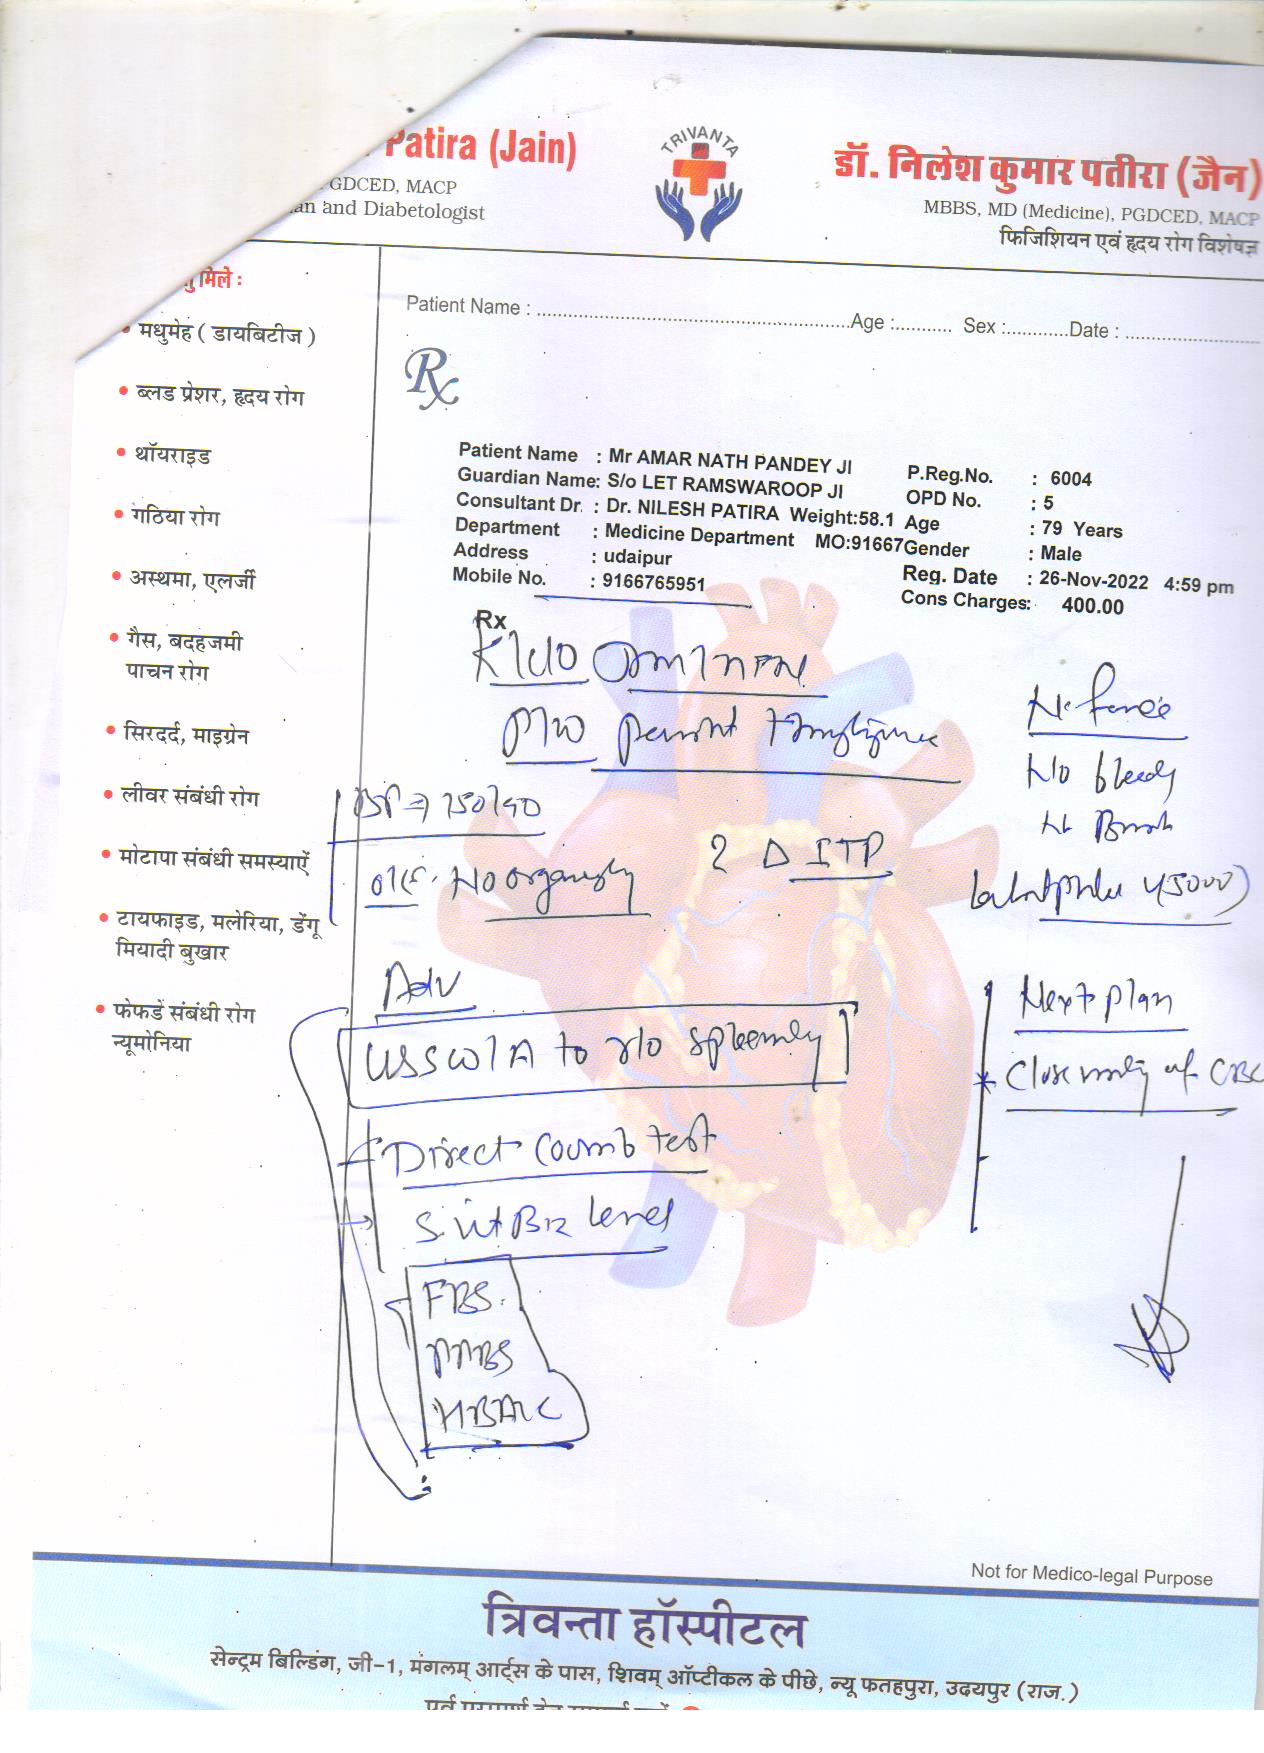 Patira (Jain)
GDCED, MACP
an and Diabetologist
TRIVANTA
डॉ. निलेश कुमार पतीरा (जैन)
MBBS, MD (Medicine), PGDCED, MACP
फिजिशियन एवं हृदय रोग विशेषज्ञ
मिले :
• मधुमेह ( डायबिटीज )
• ब्लड प्रेशर, हृदय रोग
• थॉयराइड
• गठिया रोग
• अस्थमा, एलर्जी
• गैस, बदहजमी
पाचन रोग
• सिरदर्द, माइग्रेन
• लीवर संबंधी रोग
• मोटापा संबंधी समस्याऐं
• टायफाइड, मलेरिया, डेंगू
मियादी बुखार
• फेफडें संबंधी रोग
न्यूमोनिया
Patient Name : Age : Sex : Date :
Rx
Patient Name : Mr AMAR NATH PANDEY JI
Guardian Name: S/o LET RAMSWAROOP JI
Consultant Dr. : Dr. NILESH PATIRA Weight:58.1
Department : Medicine Department MO:91667
Address : udaipur
Mobile No. : 9166765951
P.Reg.No. : 6004
OPD No. : 5
Age : 79 Years
Gender : Male
Reg. Date : 26-Nov-2022 4:59 pm
Cons Charges: 400.00
Rx
K/C/O
No bleedy
BP → 150/90
? Δ ITP
O/E. No organomegaly
Adv
USS W/A to r/o
Next plan
Close of CBC
Direct Coumb test
S. Vit B12 level
FBS
PPBS
HBA1C
Not for Medico-legal Purpose
त्रिवन्ता हॉस्पीटल
सेन्ट्रम बिल्डिंग, जी-1, मंगलम् आर्ट्स के पास, शिवम् ऑप्टीकल के पीछे, न्यू फतहपुरा, उदयपुर (राज.)